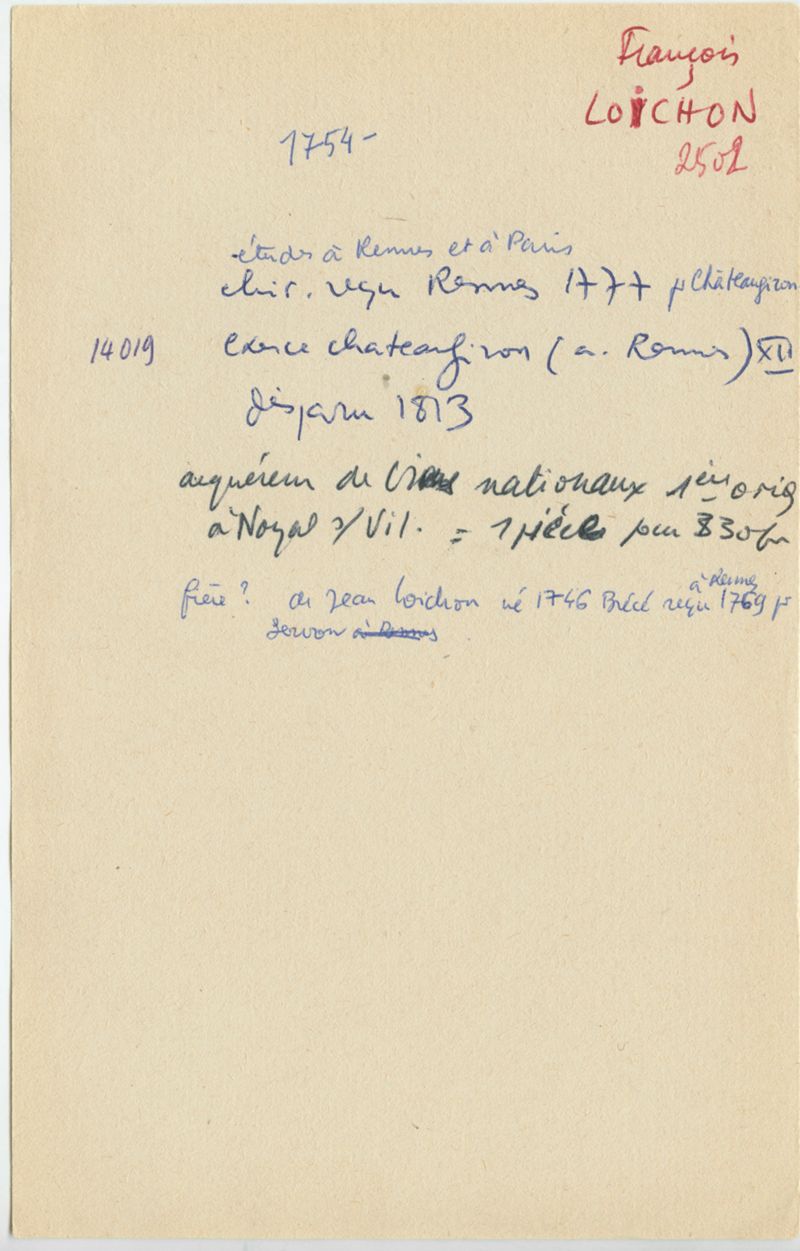 François
LOICHON
2502
1754-
études à Rennes et à Paris
chir. reçu Rennes 1777 pr Châteaugiron
14019 exerce chateaugiron (a. Rennes) XII
disparu 1813
acquéreur de biens nationaux 1ère orig
à Noyal s/Vil. = 1 pièce pour 830 fr
à Rennes
frère ? de Jean Loichon né 1746 Brécé reçu 1769 pr
Servon à Rennes